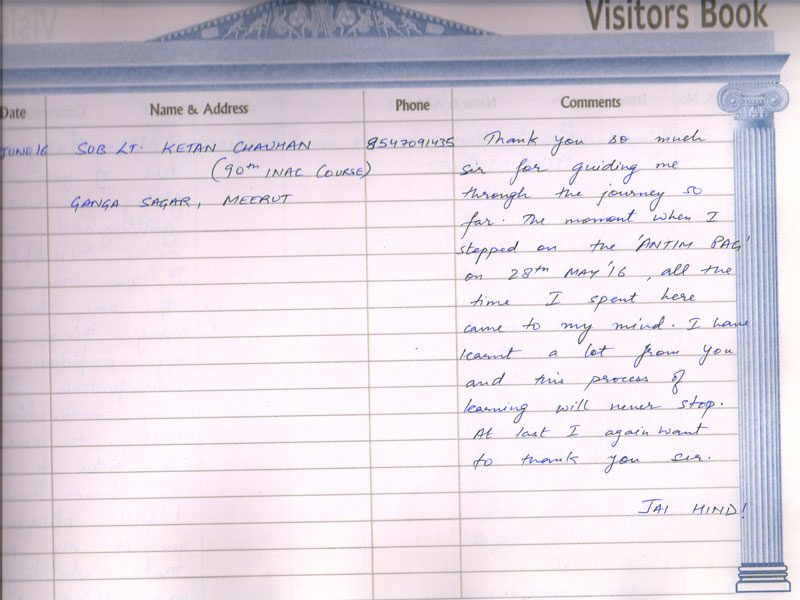 Visitors Book
Date Name & Address Phone Comments
JUNE 16 SUB LT. KETAN CHAUHAN 8547091435 Thank you so much
(90th INAC COURSE) sir for guiding me
GANGA SAGAR, MEERUT through the journey so
far. The moment when I
stepped on the 'ANTIM PAG'
on 28th MAY '16, all the
time I spent here
came to my mind. I have
learnt a lot from you
and this process of
learning will never stop.
At last I again want
to thank you sir.
JAI HIND!